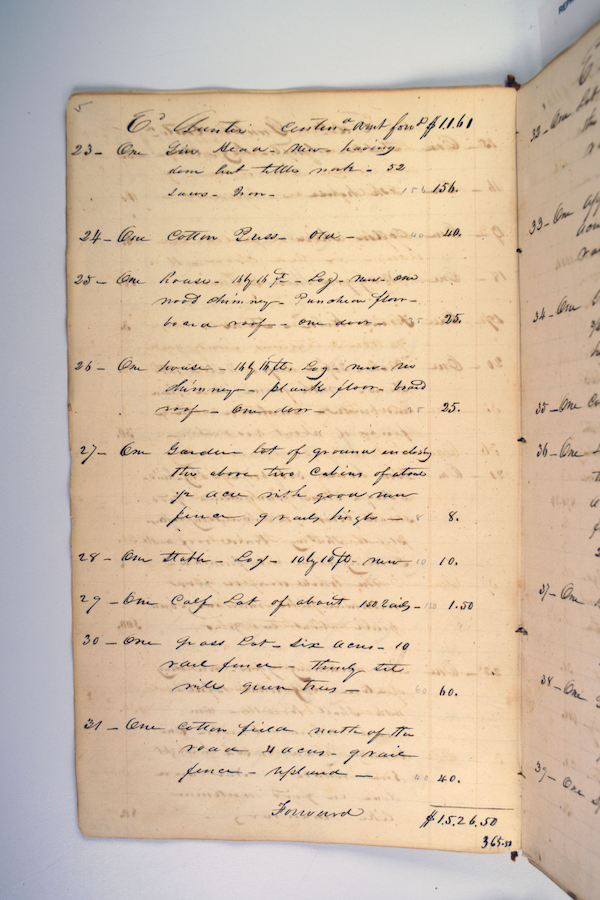 5
Ed Gunter Contind Amt forwd $1161
23 – One Gin Head – New – having
done but little work – 52
saws – Iron – 156 156.
24 – One Cotton Press – Old – 40 40.
25 – One house – 16 by 16 ft – Log – new – one
wood chimney – Puncheon floor –
board roof – one door – 25 25.
26 – One house – 16 by 16 ft. Log – new – no
chimney – plank floor – board
roof – One door – 25.
27 – One Garden lot of ground enclosing
the above two Cabins of about
1/2 acre with good new
fence 9 rails high – 8 8.
28 – One Stable – Log – 10 by 10 ft – new 10 10.
29 – One Calf Lot of about 150 rails – 150 1.50
30 – One grass Lot – six acres – 10
rail fence – thinly set
with green trees – 60 60.
31 – One cotton field north of the
road 4 acres – 9 rail
fence – Upland – 40 40.
Forward $1526.50
365.50
32 – One Lot
33 – One
34 – One
35 – One
36 – One
37 – One
38 – One
39 – One